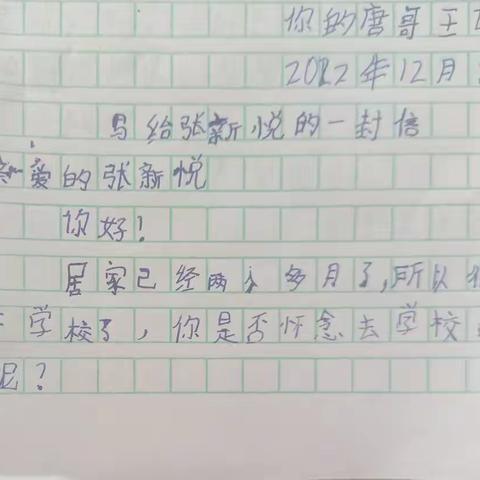 你的唐哥王
2022年12月
写给张新悦的一封信
亲爱的张新悦
你好！
居家已经两个多月了,所以
学校了，你是否怀念去学校
呢？